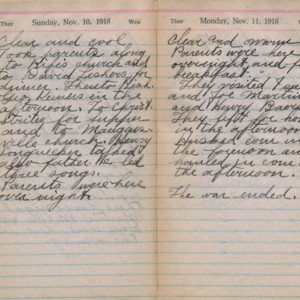 Ther
Sunday, Nov. 10, 1918
Wea
Clear and cool
Took parents along
to church
to David
for
dinner. Then to
in the
afternoon to Christ
for supper
and to Maugans-
ville church. Henry
talked
after father. He led
three songs.
Parents were here
over night.
Ther
Monday, Nov. 11, 1918
Clear and warm
Parents were here
overnight, and for
breakfast.
They visited
and Joe Martin
and Henry
They left for home
in the afternoon
Husked corn in
the forenoon and
hauled in corn
the afternoon.
The war ended.